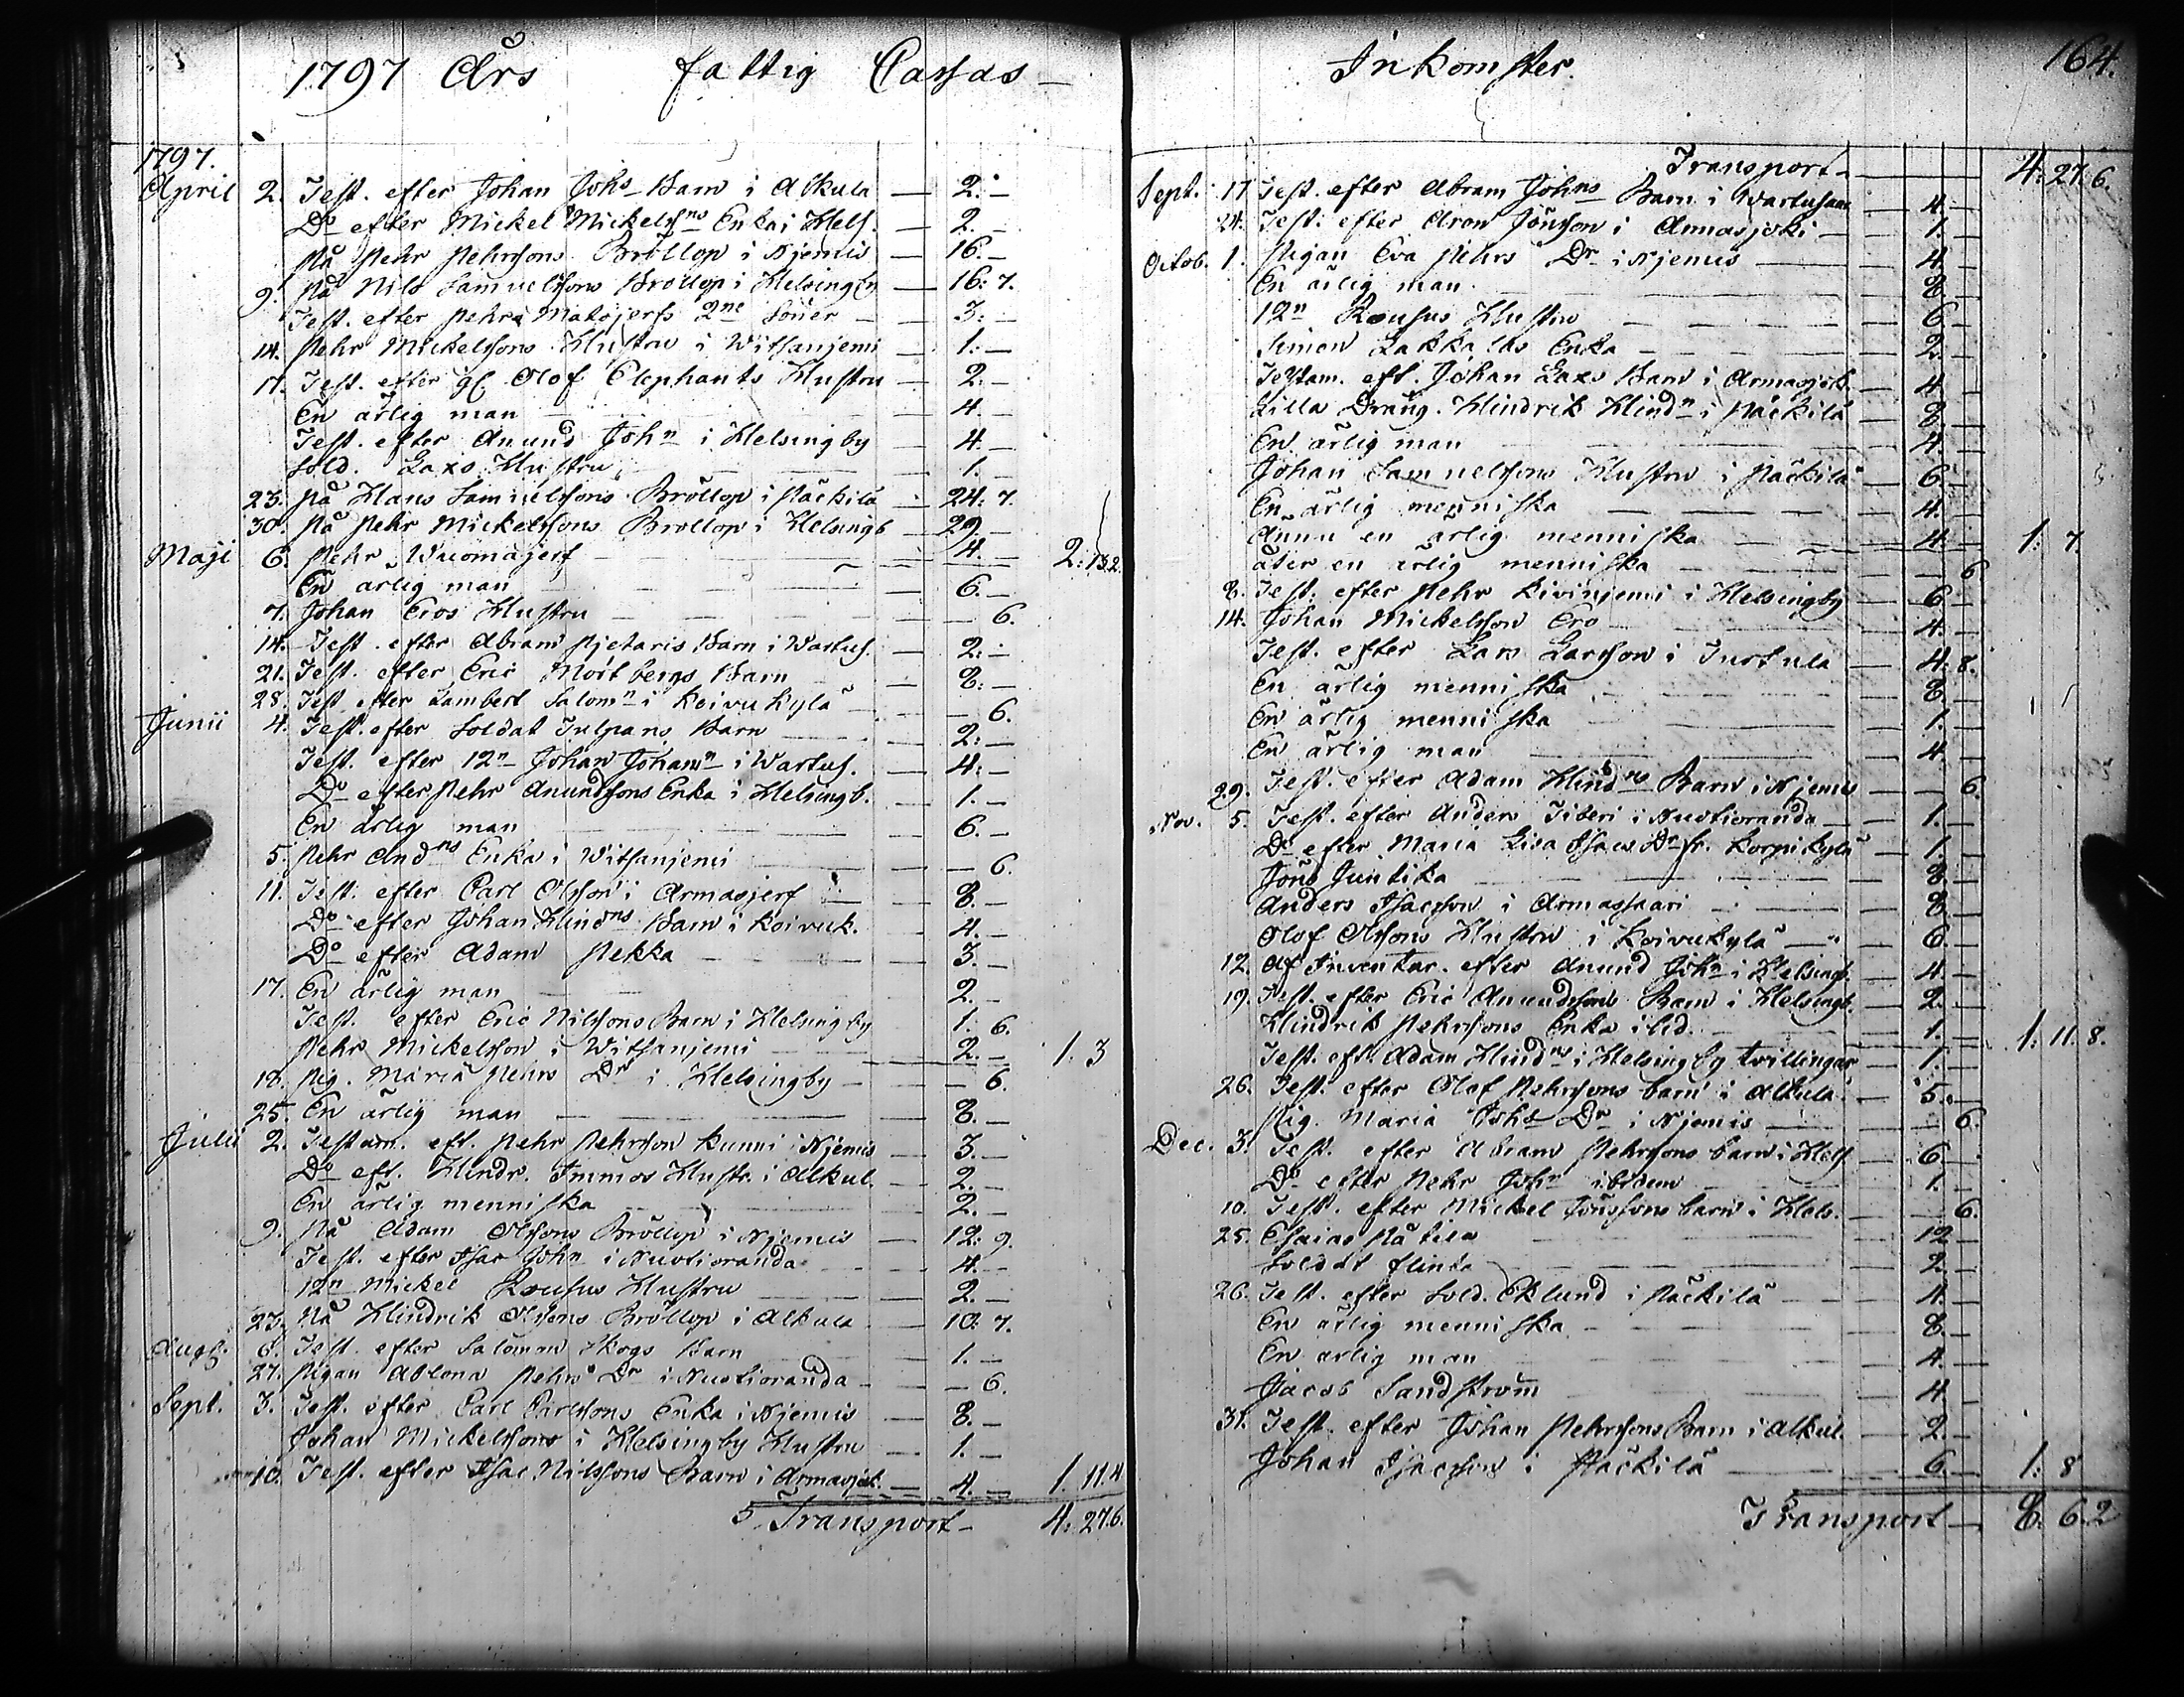 1797 Års fattig Cassas
1797.
April 2. Test. efter Johan Johs Barn i Alkula — 2. —
Do efter Mickel Mickelssns Enka i Hels. — 2. —
På Pehr Pehrssons Bröllop i Njemis — 16. —
9. På Nils Samuelssons Bröllop i Helsingby — 16: 7.
Test. efter Pehr Matojerfs 2ne Söner — 3: —
14. Pehr Mickelssons Hustru i Witsanjemi — 1: —
17. Test. efter gl. Olof Elephants Hustru — 2: —
En ärlig man — 4. —
Test. efter Anund John i Helsingby — 4. —
Sold. Laxs Hustru — 1. —
23. På Hans Samuelssons Bröllop i Päckilä — 24: 7.
30. På Pehr Mickelssons Bröllop i Helsingb — 29. —
Maji 6. Pehr Wuomajerf — 4. — 2: 13.2.
En ärlig man — 6. —
7. Johan Eros Hustru — 6.
14. Test. efter Abram Pjetaris Barn i Wartus. — 2: —
21. Test. efter Eric Mörtbergs Barn — 8: —
28. Test efter Lambert Salomn i Koivukylä — 6.
Junii 4. Test. efter Soldat Tulpans Barn — 2: —
Test. efter 12n Johan Johann i Wartus. — 4: —
Do efter Pehr Anundssons Enka i Helsingb. — 1. —
En ärlig man — 6. —
5. Pehr Andns Enka i Witsanjemi — 6.
11. Test. efter Carl Olsson i Armasjerf — 8. —
Do efter Johan Hindns Barn i Koivuk. — 4. —
Do efter Adam Pekka — 3. —
17. En ärlig man — 2. —
Test. efter Eric Nilssons Barn i Helsingby 1. 6.
Pehr Mickelsson i Witsanjemi — 2. — 1. 3
18. Pig. Maria Pehrs Dr i Helsingby — 6.
25. En ärlig man — 8. —
Julii 2. Testam. eft. Pehr Pehrsson Kunni i Njemis — 3. —
Do eft. Hindr. Immos Hustr. i Alkul. — 2. —
En ärlig menniska — 2. —
9. På Adam Olssons Bröllop i Njemis — 12: 9.
Test. efter Isac John i Nuotioranda — 4. —
12n Mickel Rousus Hustru — 2. —
23. På Hindrik Olssons Bröllop i Alkula — 10: 7.
Augs. 6. Test. efter Salomon Skogs Barn — 1. —
27. Pigan Ablona Pehrs Dr i Nuotioranda — 6.
Sept. 3. Test. efter Carl Carlssons Enka i Njemis — 8. —
Johan Mickelssons i Helsingby Hustru — 1. —
10. Test. efter Isac Nilssons Barn i Armasjok. — 4. — 1. 11.4
Transport — 4: 27.6.
Inkomster. 164.
Transport — 4: 27. 6.
Sept. 17 Test. efter Abram Johns Barn i Wartusaari — 4. —
24. Test. efter Aron Jönsson i Armasjoki — 1. —
Octob. 1. Pigan Eva Pehrs Dr i Njemis — 4 —
En ärlig man — 8. —
12n Rousus Hustru — 6 —
Simon Lakkalas Enka — 2. —
Testam. eft. Johan Laxs Barn i Armasjok. — 4 —
Lilla Dräng. Hindrik Hindn i Päckilä — 8. —
En ärlig man — 4. —
Johan Samuelssons Hustru i Päckilä — 6. —
En ärlig menniska — 4. —
Ännu en ärlig menniska — 4 — 1: 7.
åter en ärlig menniska — 6
8. Test. efter Pehr Kivinjemi i Helsingby — 6 —
14. Johan Mickelsson Ero — 4. —
Test. efter Lars Larsson i Turtula — 4. 8.
En ärlig menniska — 8. —
En ärlig menniska — 1. —
En ärlig man — 4 —
29. Test. efter Adam Hindns Barn i Njemis — 6.
Nov. 5. Test. efter Anders Tiberi i Nuotioranda — 1. —
Do efter Maria Lisa Isacs Dr fr. Korpikylä — 1 —
Jöns Juntika — 8 —
Anders Isacsson i Armassaari — 8 —
Olof Olssons Hustru i Koivukylä — 6. —
12. Af Inventar. efter Anund John i Helsingb. — 4 —
19. Test. efter Eric Anundssons Barn i Helsingb. — 2 —
Hindrik Pehrssons Enka ibid. — 1. — 1: 11. 8.
Test. eft. Adam Hindns i Helsingby tvillingar — 1. —
26. Test. efter Olof Pehrssons barn i Alkula — 5. —
Pig. Maria Johs Dr i Njemis — 6.
Dec. 3. Test. efter Abram Pehrssons barn i Hels — 6 —
Do efter Pehr John ibidem — 1. —
10. Test. efter Mickel Jönssons barn i Hels. — 6.
25. Esaias Pätila — 12 —
Soldat Flinta — 2. —
26. Test. efter Sold. Eklund i Päckilä — 4. —
En ärlig menniska — 8. —
En ärlig man — 4. —
Jacob Sandström — 4 —
31. Test. efter Johan Pehrssons Barn i Alkul. — 2 —
Johan Isacsson i Päckilä — 6. — 1: 8
Transport — 8. 6. 2